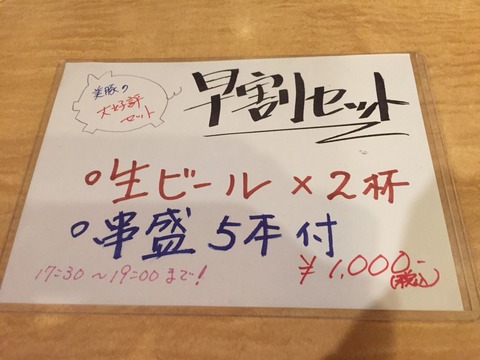 美豚の
大好評
セット
早割セット
○生ビール × 2杯
○串盛 5本付
17:30 〜19:00まで!
¥1,000-
(税込)